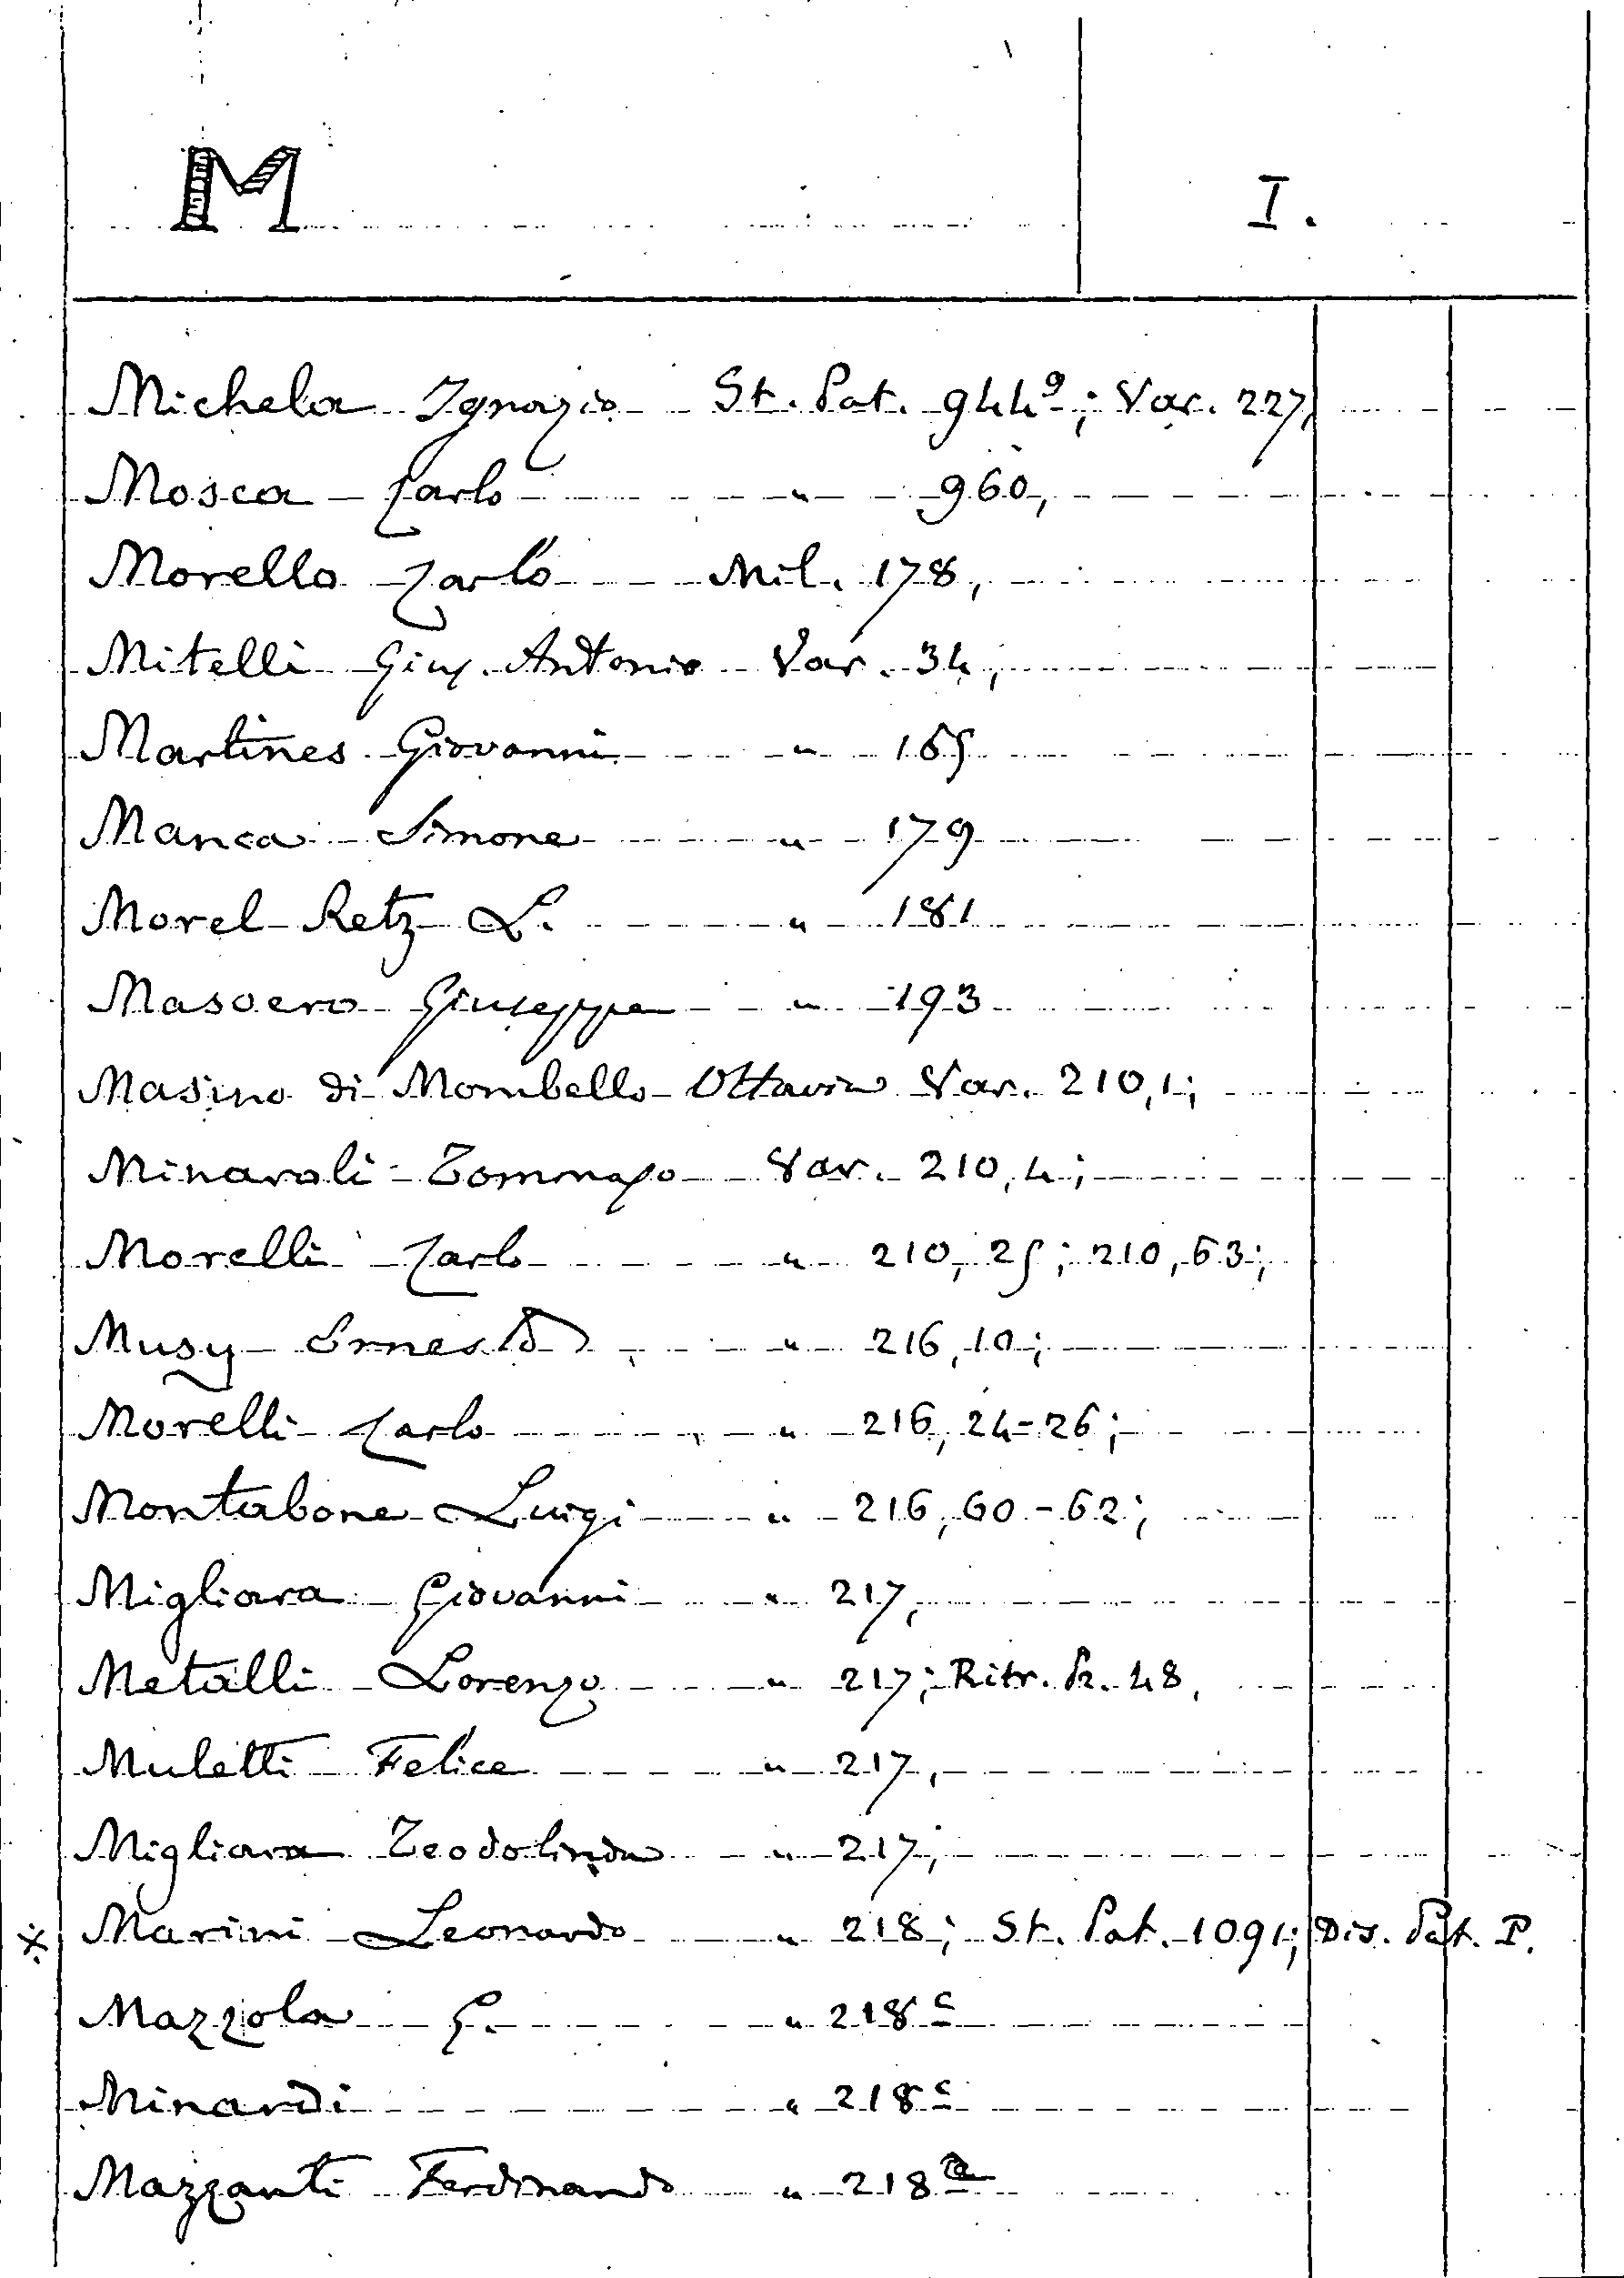 M I.
Michela Ignazio St. Pat. 944⁹; Var. 227,
Mosca Carlo " 960,
Morello Carlo Mil. 178,
Mitelli Gius. Antonio Var. 34,
Martines Giovanni " 165
Manca Simone " 179
Morel Retz L. " 181
Masoero Giuseppe " 193
Masino di Mombello Ottavio Var. 210,1;
Minaroli Tommaso Var. 210,4;
Morelli Carlo " 210,25; 210,63;
Musy Ernesto " 216,10;
Morelli Carlo " 216,24-26;
Montabone Luigi " 216,60-62;
Migliara Giovanni " 217,
Metalli Lorenzo " 217; Ritr. 48,
Muletti Felice " 217,
Migliara Teodolinda " 217;
※ Marini Leonardo " 218; St. Pat. 1091; Dis. Pat. P.
Mazzola G. " 218 c
Minardi " 218 c
Mazzanti Ferdinando " 218